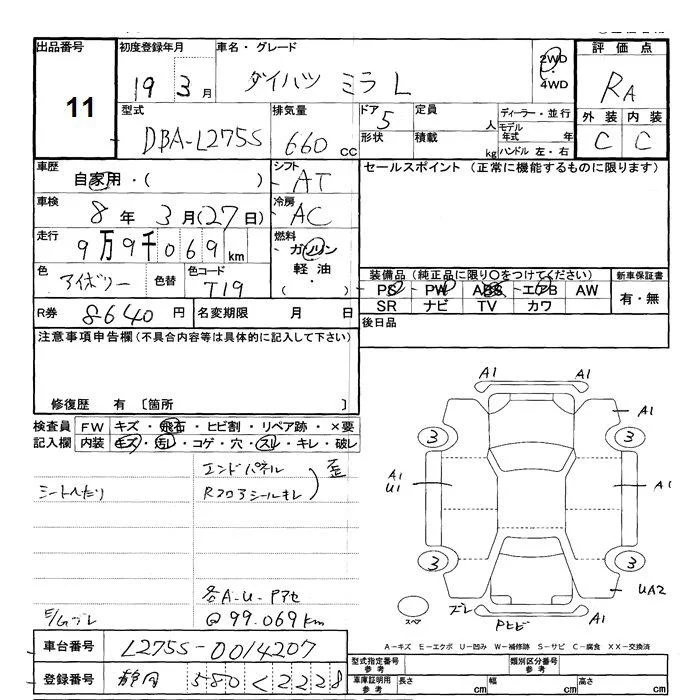 出品番号 初度登録年月 車名・グレード 2WD ・ 4WD 評価点
11 19 3月 ダイハツ ミラ L RA
型式 排気量 ドア 定員 ディーラー・並行 外装 内装
DBA-L275S 660 cc 5 人 モデル年式 年 C C
形状 積載 kg ハンドル 左・右
車歴 シフト セールスポイント (正常に機能するものに限ります)
自家用・( ) AT
車検 冷房
8年 3月(27日) AC
走行 燃料
9万9千069km ガソリン
色 色替 色コード 軽油・( )
アイボリー T19
装備品 (純正品に限り○をつけてください) 新車保証書
PS PW ABS エアB AW 有・無
SR ナビ TV カワ
R券 8640円 名変期限 月 日 後日品
注意事項申告欄(不具合内容等は具体的に記入して下さい)
修復歴 有 〔箇所 〕
検査員 FW キズ・飛石・ヒビ割・リペア跡・×要
記入欄 内装 キズ・汚レ・コゲ・穴・スレ・キレ・破レ
エンドパネル 歪
シートへたり Rフロアシールキレ
各A・U・Pアセ
@99.069km
A1 A1
A1
3 3
A1 U1 A1
3 3
UA2
スペア ズレ Pヒビ A1
A－キズ E－エクボ U－凹み W－補修跡 S－サビ C－腐食 XX－交換済
車台番号 L275S-0014207
登録番号 静岡 580 く 2228
型式指定番号 参考 類別区分番号 参考
車庫証明用 参考 長さ cm 幅 cm 高さ cm